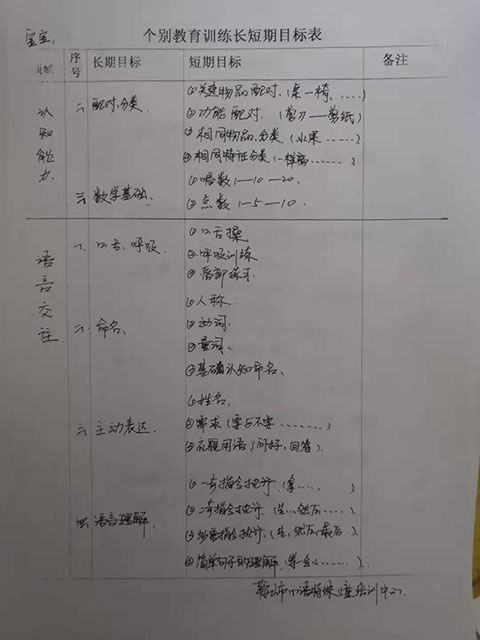 宝宝.
个别教育训练长短期目标表
领域 序号 长期目标 短期目标 备注
认知能力
二、配对、分类. ①关连物品配对.(桌一椅,....)
②功能配对.(剪刀——剪纸)
③相同物品分类(水果......)
④相同特征分类(一样高......)
三、数学基础、 ①唱数 1—10—20.
②点数 1—5—10.
语言交往
一、口舌、呼吸 ①口舌操
②呼吸训练
③唇部练习
二、命名、 ①人称.
②动词.
③量词、
④基础认知命名、
三、主动表达. ①姓名、
②需求(要与不要.......)
③礼貌用语(问好、回答)
四、语言理解. ①一步指令执行.(拿..... )
②二步指令执行.(先..然后.... )
③多步指令执行.(先,然后,最后.)
④简单句子的理解
鞍山市 语特殊儿童培训中心.